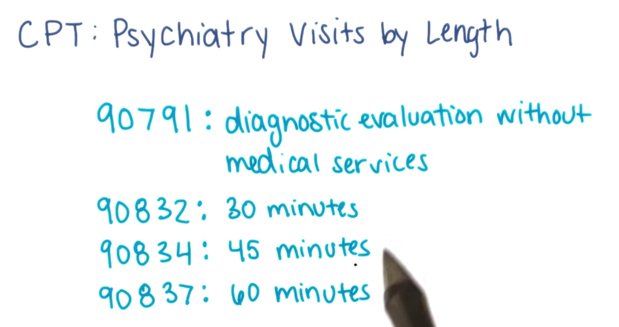 CPT: Psychiatry Visits by Length
90791: diagnostic evaluation without
medical services
90832: 30 minutes
90834: 45 minutes
90837: 60 minutes